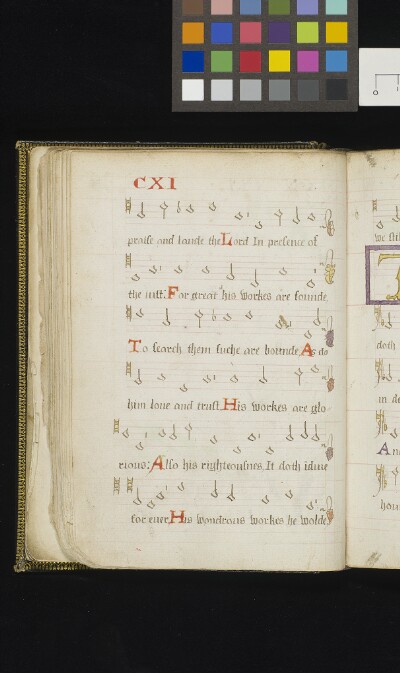 CXI
praise and laude the Lord In presence of
the iust. For great his workes are founde,
To search them suche are bounde, As do
him loue and trust. His workes are glo-
rious: Also his righteousnes, It doth idure
for euer, His wondrous workes he wolde,
we
doth
in de
And